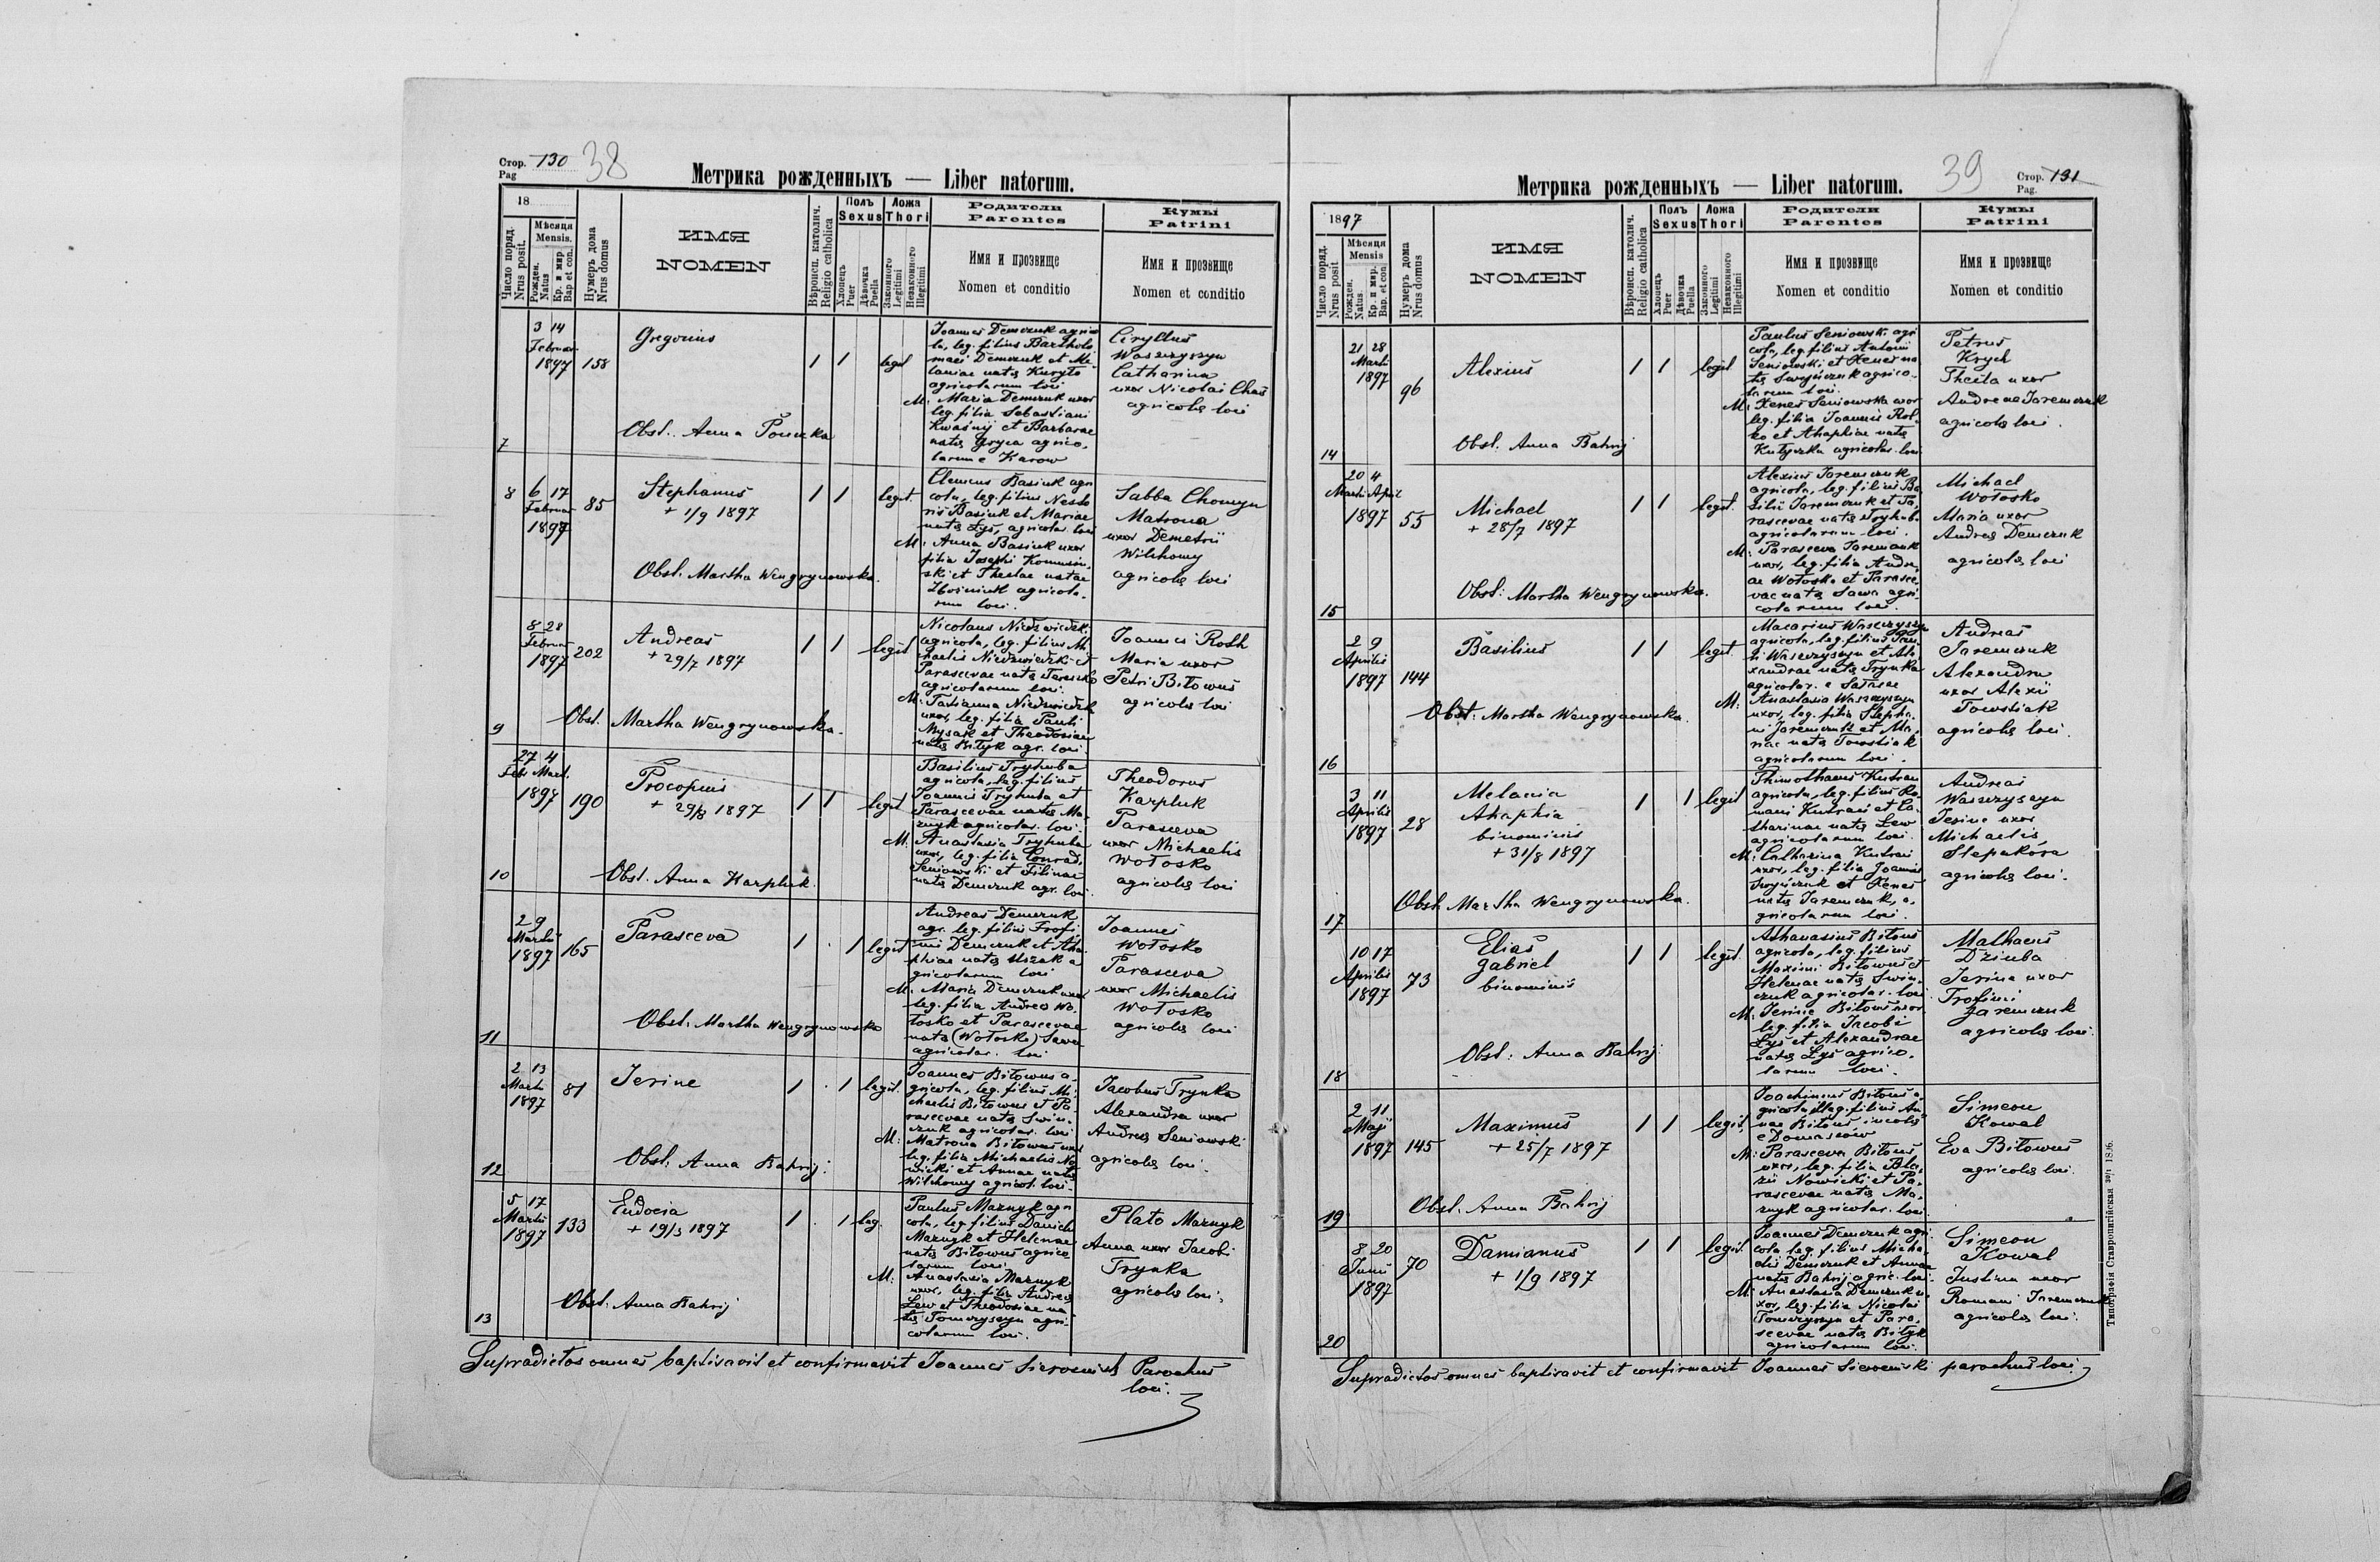 Стор. 130 38
Pag
Метрика рожденныхъ — Liber natorum.
18
Число поряд. Nrus posit.
Мѣсяця Mensis.
Рожден. Natus
Кр. и мир. Bap et con.
Нумеръ дома Nrus domus
ИМЯ
NOMEN
Вѣроисп. католич. Religio catholica
Полъ Sexus
Хлопецъ Puer
Дѣвочка Puella
Ложа Thori
Законного Legitimi
Незаконного Illegitimi
Родители
Parentes
Имя и прозвище
Nomen et conditio
Кумы
Patrini
Имя и прозвище
Nomen et conditio
7
3 14
Februar
1897
158
Gregorius
Obst. Anna
1 1 legit
Joannes Demczuk agrico
la, leg. filius Bartholo
maei Demczuk et Me
laniae natae Kuryło
agricolarum loci
M: Maria Demczuk uxor
leg. filia Sebastiani
Kwaśnij et Barbarae
natae Gryca agrico-
larum e Karow
Cyryllus
Waszczyszyn
Catharina
uxor Nicolai
agricolae loci
8
6 17
Februar
1897
85
Stephanus
+ 1/9 1897
Obst. Martha Wengrynowska.
1 1 legit.
Clemens Basiuk agri
cola, leg. filius Nesto
ris Basiuk et Mariae
natae Łyś, agricolar. loci
M: Anna Basiuk uxor
filia Josephi
ski et Theclae natae
agricola-
rum loci.
Sabba Chomyn
Matrona
uxor Demetrii
Wilchowy
agricolae loci
9
8 28
Februar
1897
202
Andreas
+ 29/7 1897
Obst. Martha Wengrynowska.
1 1 legit
Nicolaus Niedzwiedzki
agricola, leg. filius Mi
chaelis Niedzwiedzki et
Parascevae natae
agricolarum loci.
M: Tatianna Niedzwiedzka
uxor, leg. filia Pauli
Mysak et Theodosiae
natae Bityk agr. loci
Joannes Roth
Maria uxor
Petri Bitowus
agricolae loci
10
27 4
Febr Mart.
1897
190
Procopius
+ 29/8 1897
Obst. Anna Karpluk.
1 1 legit
Basilius Tryhuba
agricola, leg. filius
Joannis Tryhuba et
Parascevae natae Ma-
znyk agricolar. loci.
M. Anastasia Tryhuba
uxor, leg. filia Conradi
Seniowski et Filinae
natae Demczuk agr. loci.
Theodorus
Karpluk
Parasceva
uxor Michaelis
Wołosko
agricolae loci
11
2 9
Martii
1897
165
Parasceva
Obst: Martha Wengrynowska
1 . 1 legit
Andreas Demczuk
agr. leg. filius Trofi
mi Demczuk et Aha
phiae natae a
gricolarum loci
M. Maria Demczuk uxor
leg. filia Andreae Wo-
łosko et Parascevae
natae (Wołosko) Sawa
agricolar. loci
Joannes
Wołosko
Parasceva
uxor Michaelis
Wołosko
agricolae loci
12
2 13
Martii
1897
81
Jerine
Obst. Anna Bahrij.
1 . 1 legit.
Joannes Bitowus a-
gricola, leg. filius Mi-
chaelis Bitowus et Pa-
rascevae natae Swin-
czuk agricolar. loci
M: Matrona Bitowus uxor
leg. filia Michaelis No
wicki et Annae natae
Wilchowy agricol. loci
Jacobus Trynka
Alexandra uxor
Andreae Seniowski
agricolae loci.
13
5 17
Martii
1897
133
Eudocia
+ 19/3 1897
Obst. Anna Bahrij
1 . 1 leg.
Paulus Maznyk agri
cola, leg filius Danielis
Maznyk et Helenae
natae Bitowus agrico
larum loci
M: Anastasia Maznyk
uxor, leg. filia Andreae
Lew et Theodosiae na
tae Tomczyszyn agri-
colarum loci.
Plato Maznyk
Anna uxor Jacobi
Trynka
agricolae loci.
Supradictos omnes baptisavit et confirmavit Joannes Sierociński Parochus
loci.
39 Стор. 131
Pag.
Метрика рожденныхъ — Liber natorum.
1897
Число поряд. Nrus posit
Мѣсяця Mensis
Рожден. Natus.
Кр. и мир. Bap. et con.
Нумеръ дома Nrus domus
ИМЯ
NOMEN
Вѣроисп. католич. Religio catholica
Полъ Sexus
Хлопецъ Puer
Дѣвочка Puella
Ложа Thori
Законного Legitimi
Незаконного Illegitimi
Родители
Parentes
Имя и прозвище
Nomen et conditio
Кумы
Patrini
Имя и прозвище
Nomen et conditio
14
21 28
Martii
1897
96
Alexius
Obst. Anna Bahrij
1 1 legit
Paulus Seniowski agri
cola, leg. filius Antonii
Seniowski et Xenes na
tae agrico-
larum loci.
M: Xenes Seniowska uxor
leg. filia Joannis
et Ahaphiae natae
agricolar. loci
Petrus
Krych
Thecla uxor
Andreae Jaremczuk
agricolae loci.
15
20 4
Martii April
1897
55
Michael
+ 28/7 1897
Obst: Martha Wengrynowska.
1 1 legit.
Alexius Jaremczuk
agricola, leg. filius Ba
zilii Jaremczuk et Pa
rascevae natae Tryhub.
agricolarum loci.
M: Parasceva Jaremczuk
uxor, leg. filia Andre-
ae Wołosko et Parasce-
vae natae Sawa agri-
colarum loci.
Michael
Wołosko
Maria uxor
Andreae Demczuk
agricolae loci
16
2 9
Aprilis
1897
144
Basilius
Obst: Martha Wengrynowska.
1 1 legit.
Macarius Waszczyszyn
agricola, leg. filius Pau
li Waszczyszyn et Ale
xandrae natae Trynka
agricolar. e
M: Anastasia Waszczyszyn
uxor, leg. filia Stepha-
ni Jaremczuk et Ma-
riae natae Towstiak
agricolarum loci.
Andreas
Jaremczuk
Alexandra
uxor Alexii
Towstiak
agricolae loci.
17
3 11
Aprilis
1897
28
Melania
Ahaphia
binominis
+ 31/8 1897
Obst. Martha Wengrynowska.
1 1 legit
Thimothaeus Kutran
agricola, leg. filius Ro
mani Kutran et Ca-
tharinae natae Lew
agricolarum loci.
M: Catharina Kutran
uxor, leg. filia Joannis
et Xenes
natae Jaremczuk, a-
gricolarum loci.
Andreas
Waszczyszyn
Jerine uxor
Michaelis
agricolae loci.
18
10 17
Aprilis
1897
73
Elias
Gabriel
binominis
Obst: Anna Bahrij
1 1 legit.
Athanasius Bitous
agricola, leg. filius
Maximi Bitowus et
Helenae natae Swin-
czuk agricolar. loci
M: Jerine Bitous uxor
leg. filia Jacobi
Łyś et Alexandrae
natae Łyś agrico-
larum loci.
Mathaeus
Dziuba
Jerina uxor
Trofimi
Jaremczuk
agricolae loci.
19
2 11
Maji
1897
145
Maximus
+ 25/7 1897
Obst. Anna Bahrij
1 1 legit.
Joachimus Bitous a-
gricola, illeg. filius An-
nae Bitous incolae
e Domaszów
M: Parasceva Bitous,
uxor, leg. filia Bla-
zii Nowicki et Pa-
rascevae natae Ma-
znyk agricolar. loci
Simeon
Kowal
Eva Bitowus
agricolae loci.
20
8 20
Junii
1897
70
Damianus
+ 1/9 1897
1 1 legit.
Joannes Demczuk agri-
cola leg. filius Micha-
elis Demczuk et Annae
natae Bahrij agric. loci.
M: Anastasia Demczuk u-
xor, leg. filia Nicolai
Tomczyszyn et Para-
scevae natae Bityk
agricolarum loci.
Simeon
Kowal
Justina uxor
Romani Jaremczuk
agricolae loci.
Supradictos omnes baptisavit et confirmavit Joannes Sierociński parochus loci.
Типографія Ставропигійская